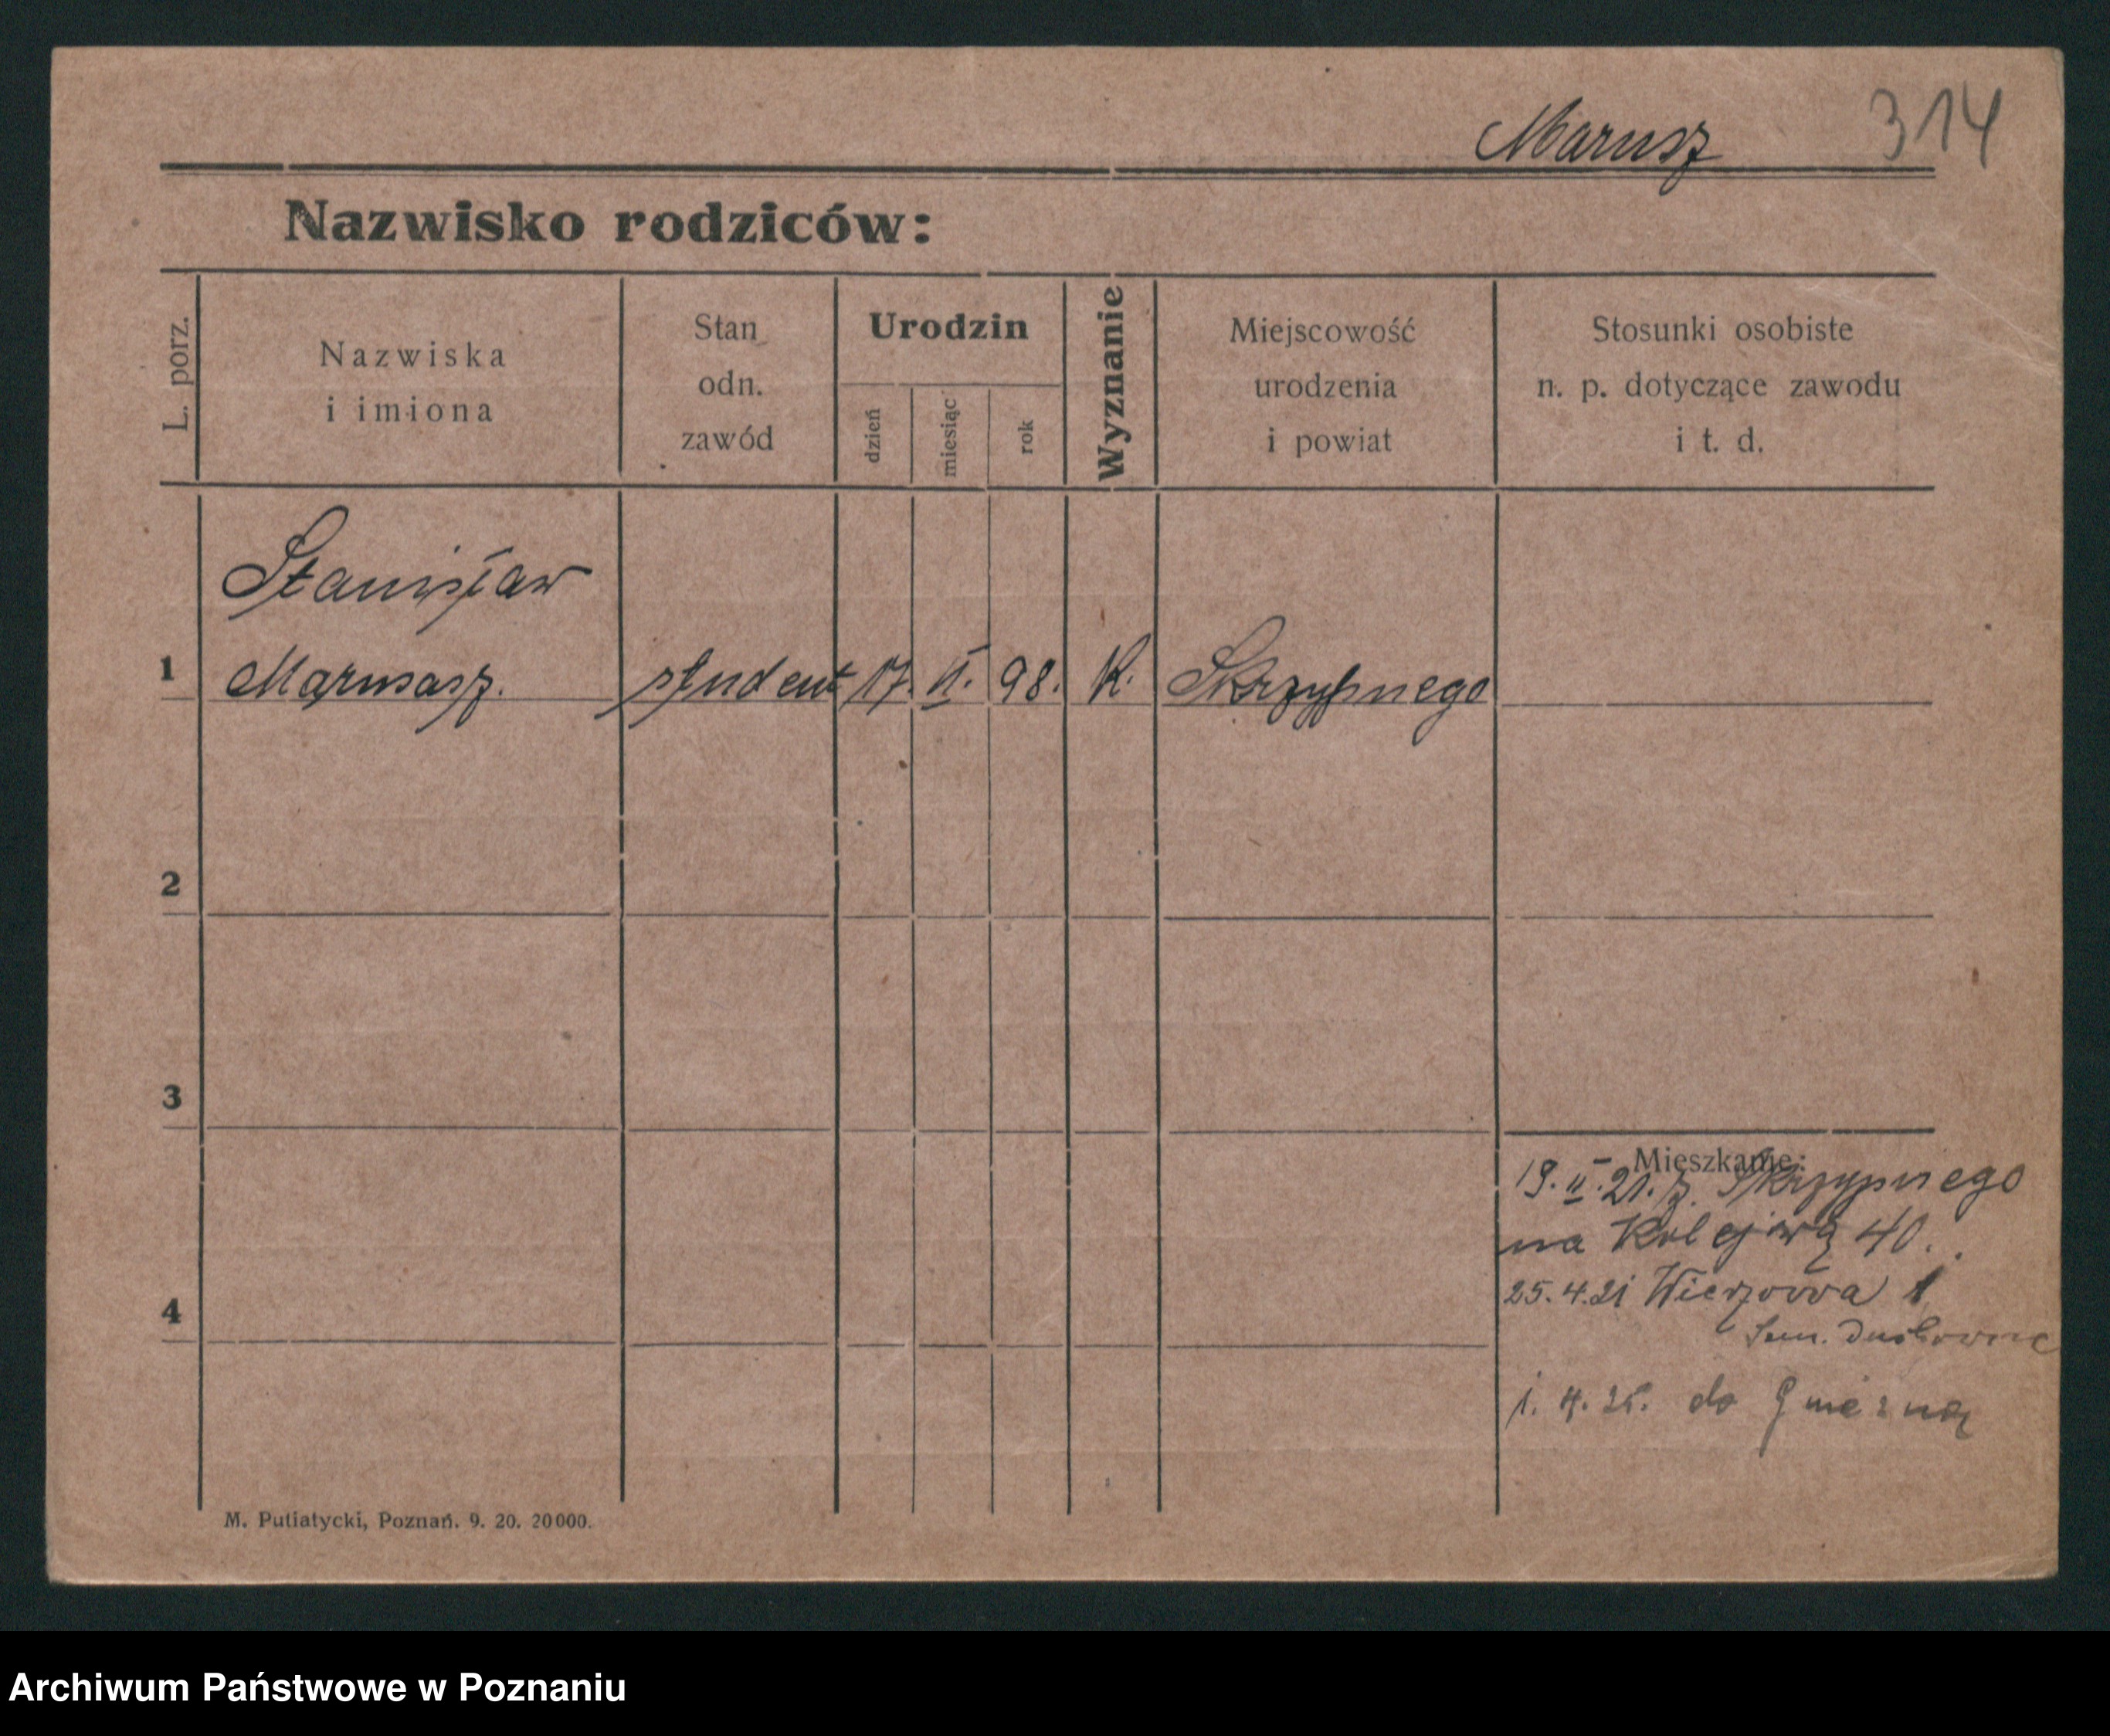 Marusz 314
Nazwisko rodziców:
L. porz.
Nazwiska
i imiona
Stan
odn.
zawód
Urodzin
dzień
miesiąc
rok
Wyznanie
Miejscowość
urodzenia
i powiat
Stosunki osobiste
n. p. dotyczące zawodu
i t. d.
Stanisław
1 Marusasz. student 17. II. 98. K. Skrzypnego
2
3
Mieszkanie:
19. II. 21. z Skrzypnego
na Kolejwą 40.
25.4.21 Wierzowa 1
Sem. Duchowne
4
1. 4. 25. do Gniezna
M. Putiatycki, Poznań. 9. 20. 20000.
Archiwum Państwowe w Poznaniu